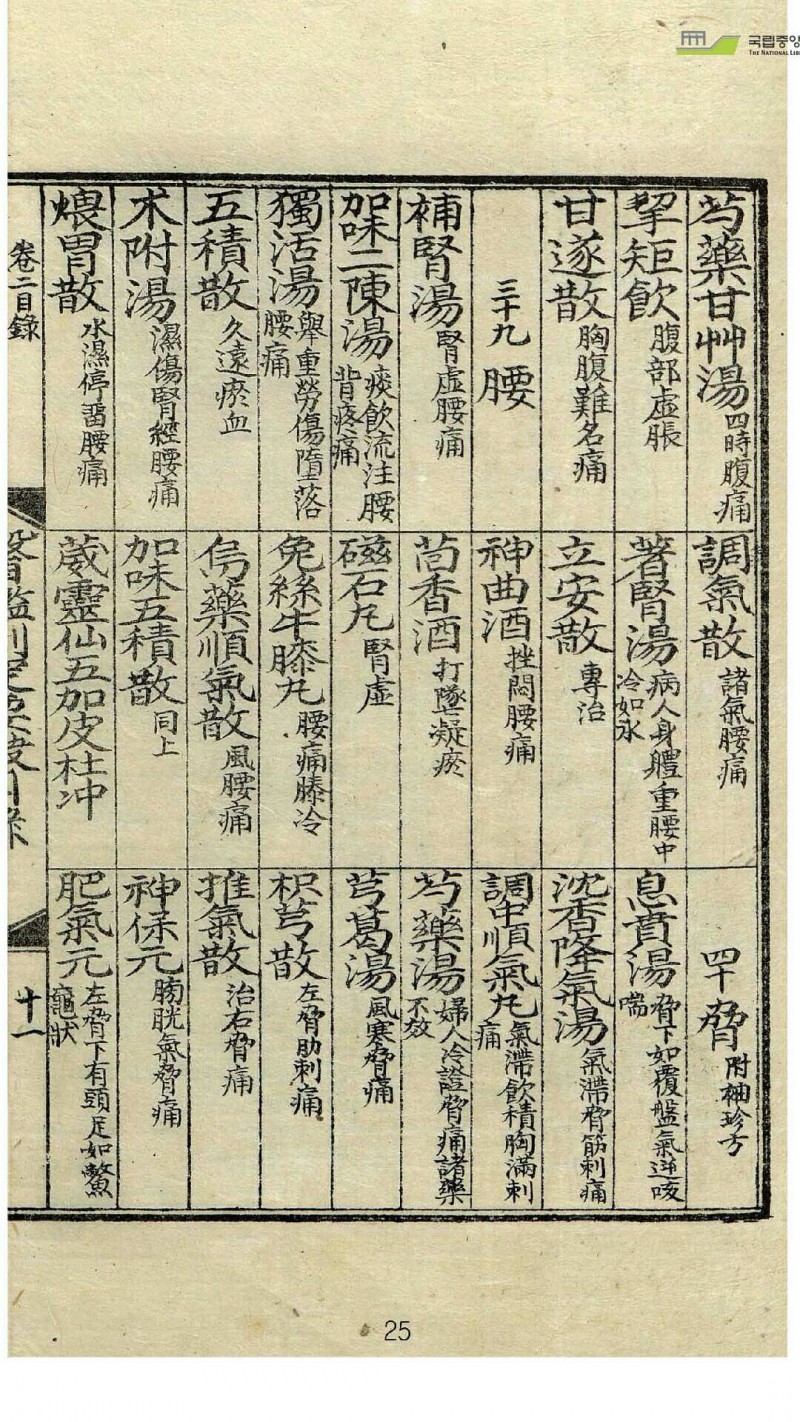 국립중앙
THE NATIONAL LIB
芍藥甘艸湯 四時腹痛
挐矩飮 腹部虛脹
甘遂散 胸腹難名痛
三十九 腰
補腎湯 腎虛腰痛
加味二陳湯 痰飮流注腰背疼痛
獨活湯 擧重勞傷墮落腰痛
五積散 久遠瘀血
朮附湯 濕傷腎經腰痛
煨胃散 水濕停畱腰痛
調氣散 諸氣腰痛
著腎湯 病人身軆重腰中冷如氷
立安散 專治
神曲酒 挫悶腰痛
茴香酒 打墜凝瘀
磁石丸 腎虛
兔絲牛膝丸 腰痛膝冷
烏藥順氣散 風腰痛
加味五積散 同上
葳靈仙五加皮杜冲
四十 脅 附袖珍方
息賁湯 脅下如覆盤氣逆咳喘
沈香降氣湯 氣滯脅筋刺痛
調中順氣丸 氣滯飮積胸滿刺痛
芍藥湯 婦人冷證脅痛諸藥不效
芎葛湯 風寒脅痛
枳芎散 左脅肋刺痛
推氣散 治右脅痛
神保元 膀胱氣脅痛
肥氣元 左脅下有頭足如鱉龜狀
卷二目錄
十一
25